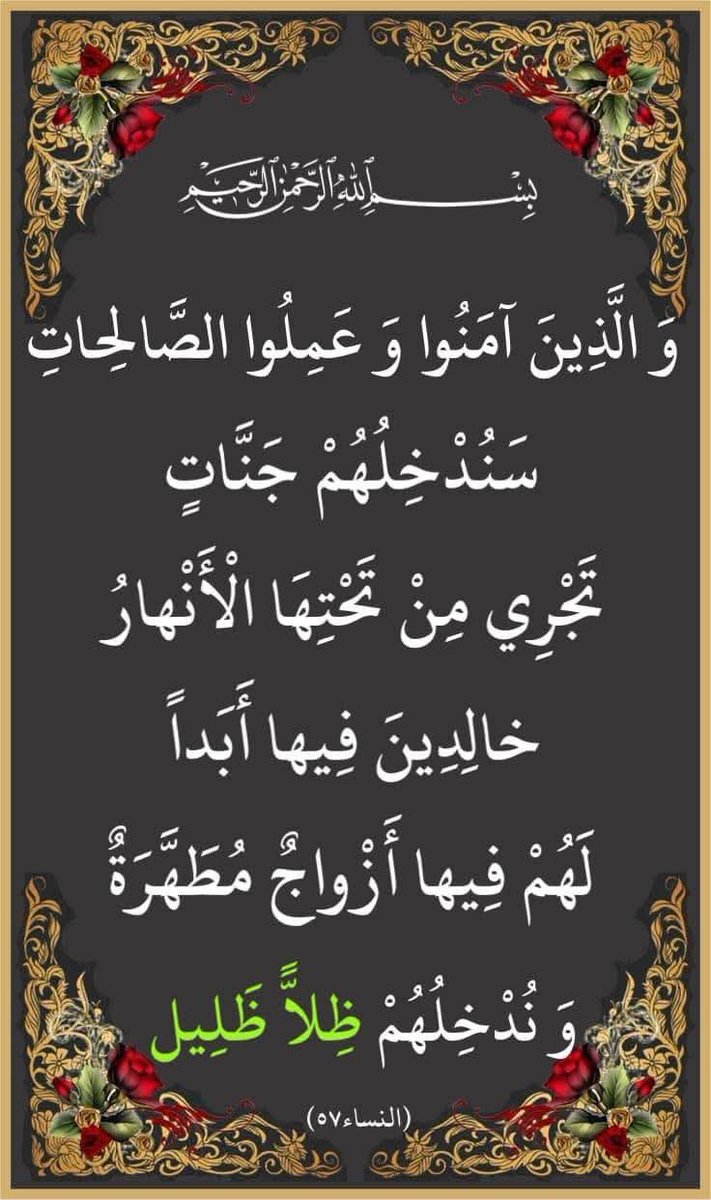 بِسْمِ ٱللَّهِ ٱلرَّحْمَٰنِ ٱلرَّحِيمِ
وَ الَّذِينَ آمَنُوا وَ عَمِلُوا الصَّالِحاتِ
سَنُدْخِلُهُمْ جَنَّاتٍ
تَجْرِي مِنْ تَحْتِهَا الْأَنْهارُ
خالِدِينَ فِيها أَبَداً
لَهُمْ فِيها أَزْواجٌ مُطَهَّرَةٌ
وَ نُدْخِلُهُمْ ظِلاًّ ظَلِيل
(النساء٥٧)